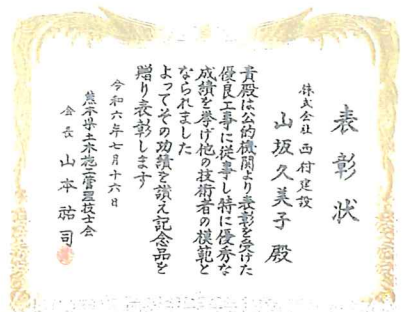 表彰状
株式会社 西村建設
山坂久美子 殿
貴殿は公的機関より表彰を受けた
優良工事に従事し特に優秀な
成績を挙げ他の技術者の模範と
なられました
よってその功績を讃え記念品を
贈り表彰します
令和六年七月十六日
熊本県土木施工管理技士会
会長 山本祐司